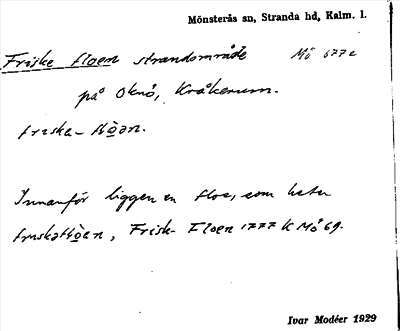 Mönsterås sn, Stranda hd, Kalm. l.
Friske floen strandområde Mö 677c
på Oknö, Kråkerum.
Innanför ligger en floe, som heter
Frisk- Floen 1777 K Mö 69.
Ivar Modéer 1929